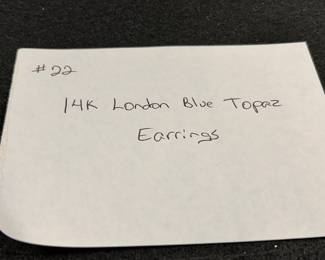 #22
14K London Blue Topaz
Earrings